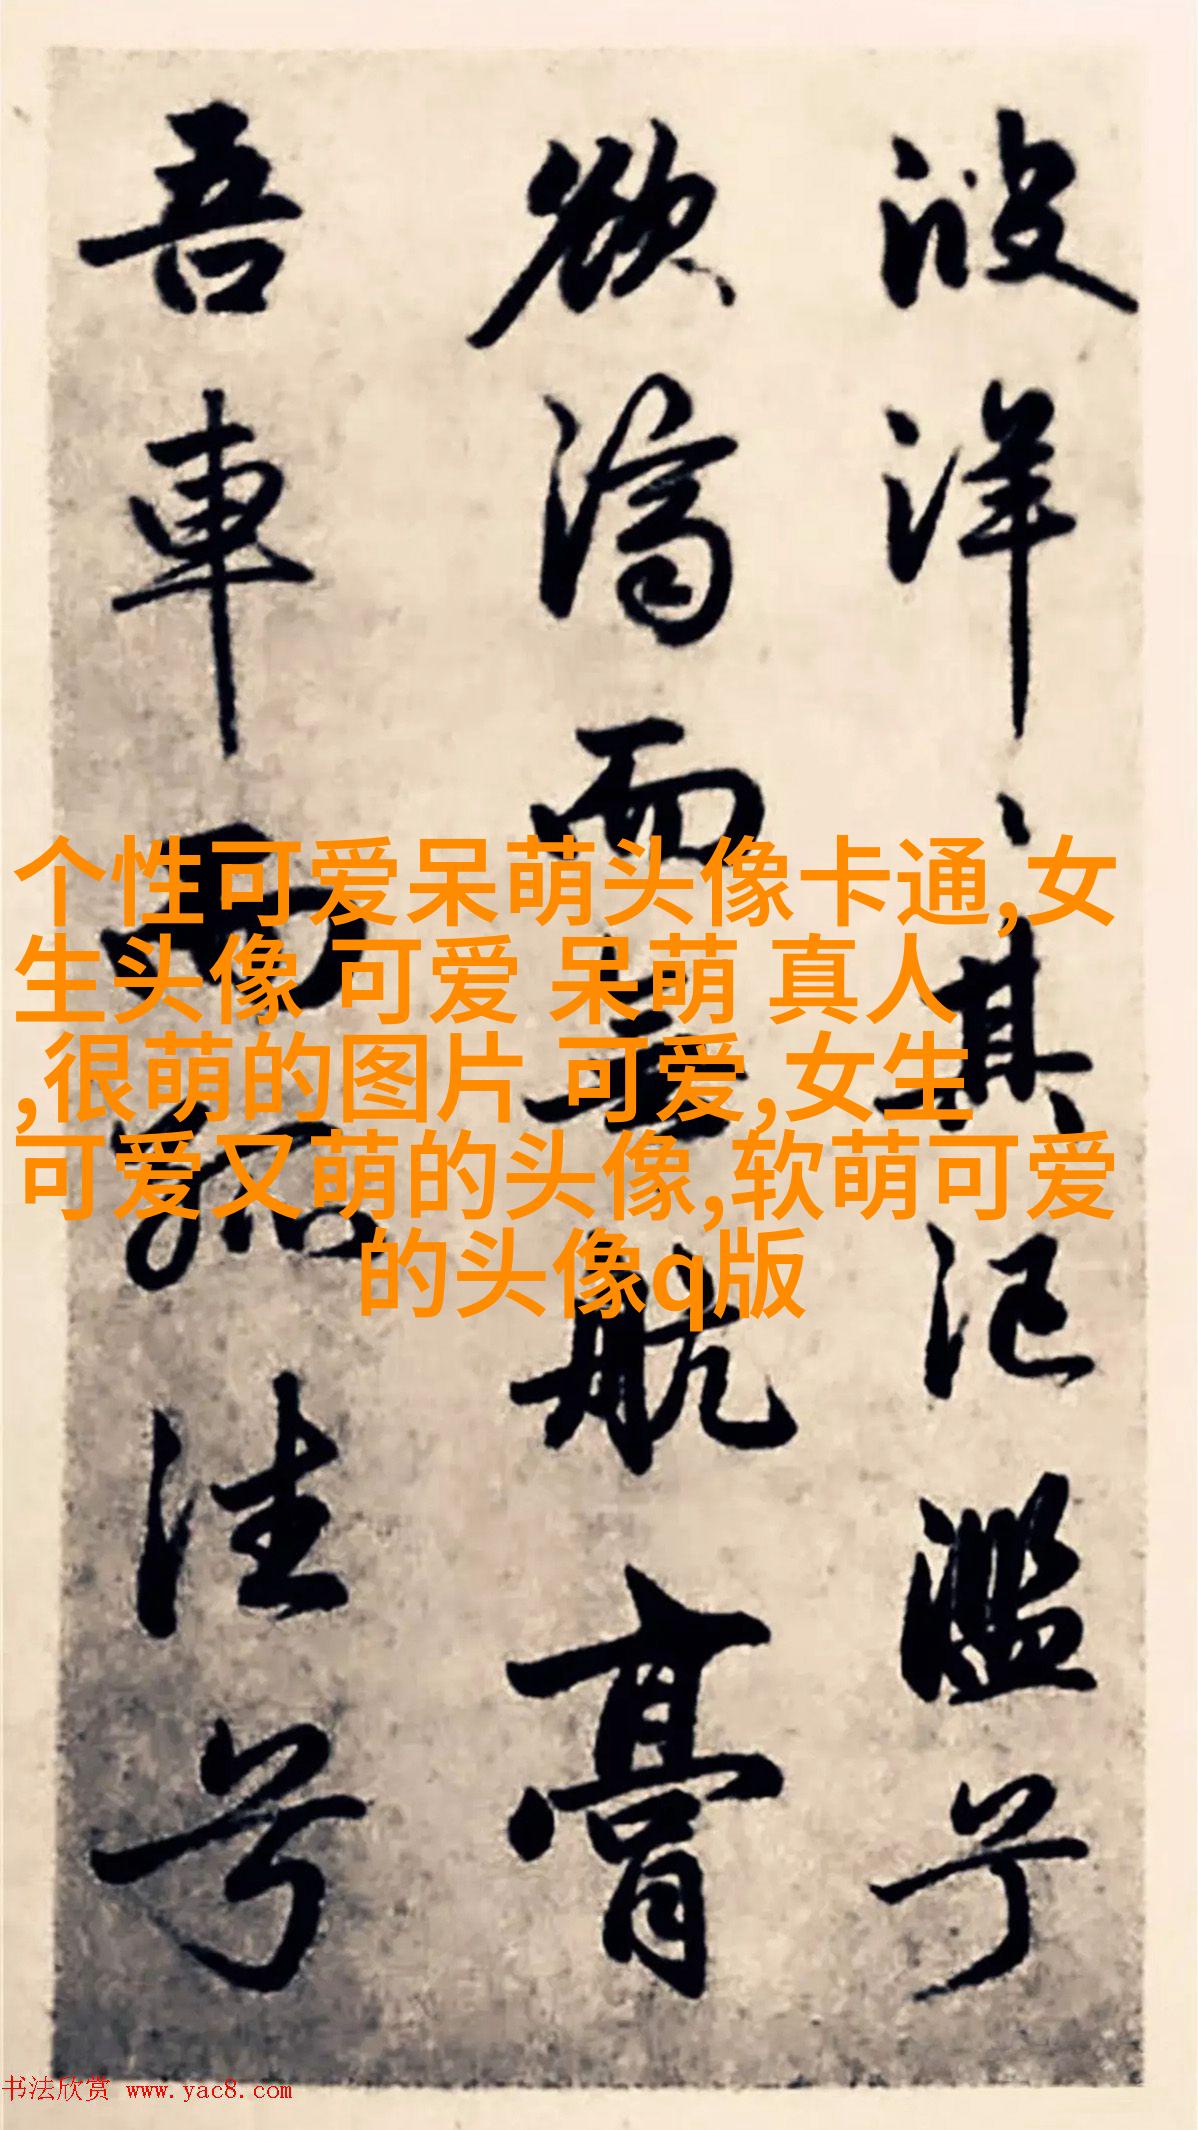 波洋〻其氾濫兮
欲濟而無航膏
吾車而孤往兮
个性可爱呆萌头像卡通,女
生头像 可爱 呆萌 真人
,很萌的图片 可爱,女生
可爱又萌的头像,软萌可爱
的头像q版
书法欣赏 www.yac8.com